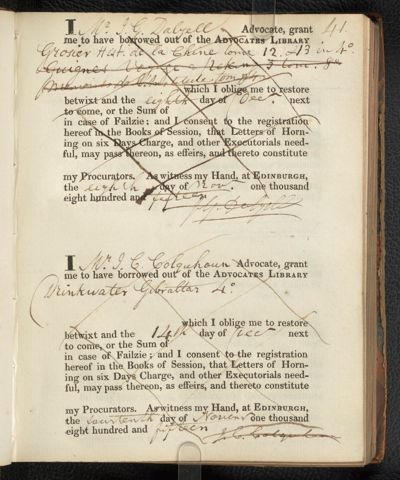 41.
I Mr. J G Dalyell Advocate, grant
me to have borrowed out of the ADVOCATES LIBRARY
Grosier Hist. de la Chine tome 12. & 13 in 4o
which I oblige me to restore
betwixt and the eighth day of Dec. next
to come, or the Sum of
in case of Failzie; and I consent to the registration
hereof in the Books of Session, that Letters of Horn-
ing on six Days Charge, and other Executorials need-
ful, may pass thereon, as effeirs, and thereto constitute
my Procurators. As witness my Hand, at EDINBURGH,
the eighth day of Nov. one thousand
eight hundred and fifteen
J. G. Dalyell
I Mr. J. C. Colquhoun Advocate, grant
me to have borrowed out of the ADVOCATES LIBRARY
Drinkwater Gibraltar 4o.
which I oblige me to restore
betwixt and the 14th day of Dec next
to come, or the Sum of
in case of Failzie; and I consent to the registration
hereof in the Books of Session, that Letters of Horn-
ing on six Days Charge, and other Executorials need-
ful, may pass thereon, as effeirs, and thereto constitute
my Procurators. As witness my Hand, at EDINBURGH,
the fourteenth day of Novemr one thousand
eight hundred and fifteen
J. C. Colquhoun